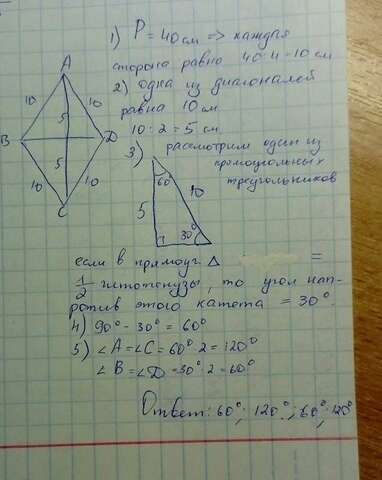 1) P = 40 см => каждая
сторона равна 40:4=10 см
2) одна из диагоналей
равна 10 см
10:2=5 см
3) рассмотрим один из
прямоугольных
треугольников
A
10
10
5
B
D
5
10
10
C
60°
5
10
30°
если в прямоуг. Δ =
1/2 гипотенузы, то угол нап-
ротив этого катета = 30°.
4) 90° - 30° = 60°
5) ∠A=∠C=60°·2=120°
∠B=∠D=30°·2=60°
Ответ: 60°; 120°; 60°; 120°